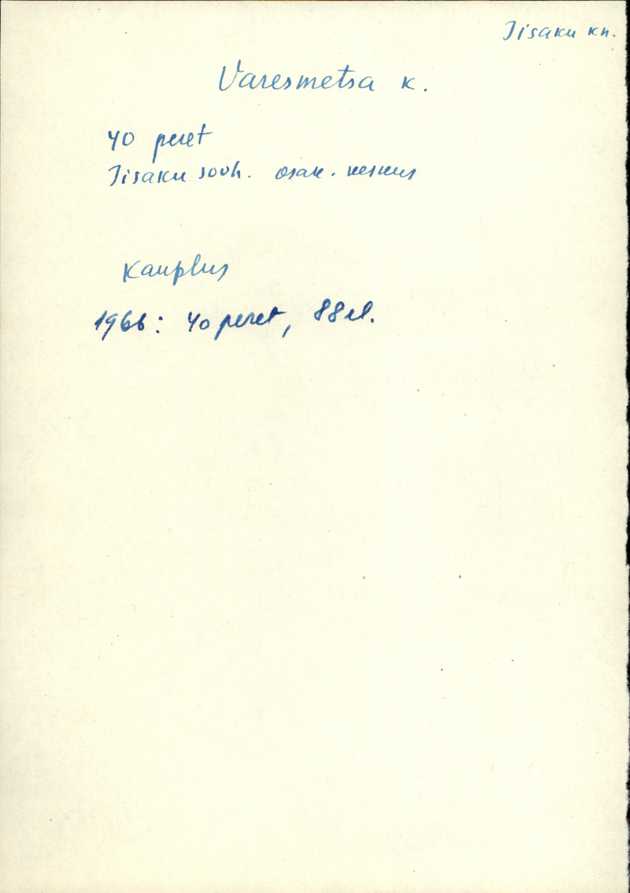 Iisaku kn.
Varesmetsa k.
40 peret
Iisaku sovh. osak. keskus
Kauplus
1966: 40 peret, 88 el.